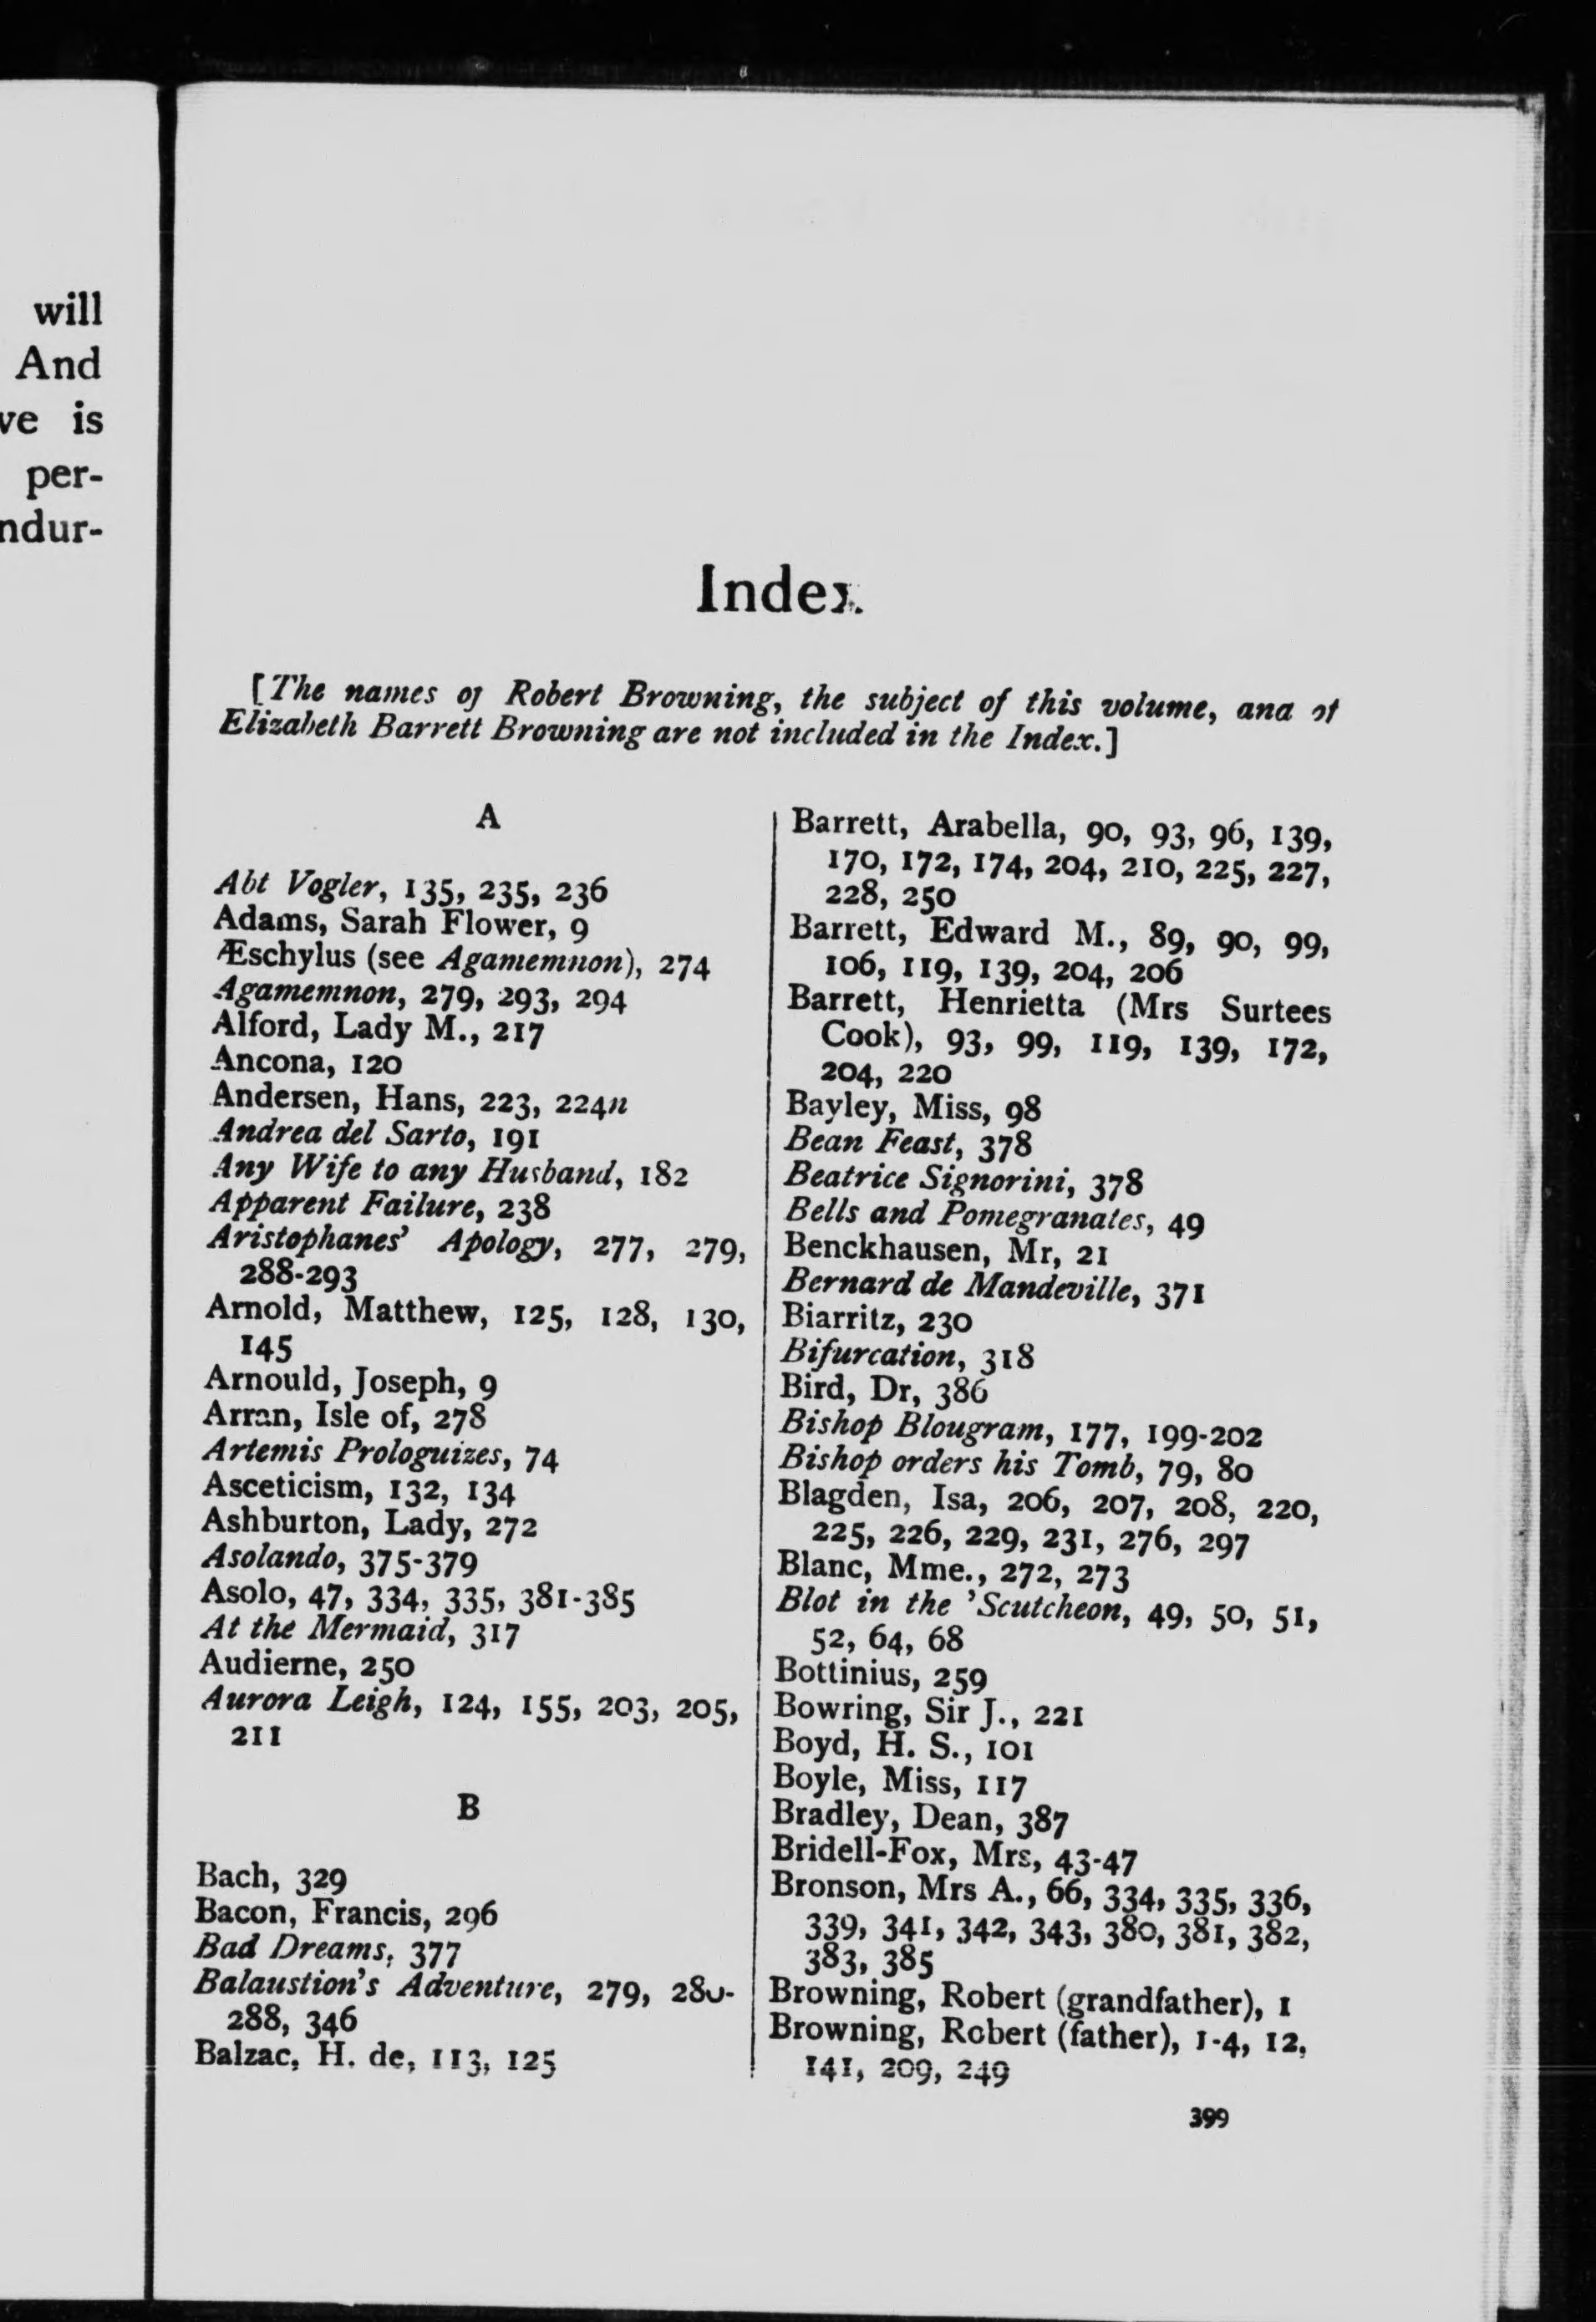 will
And
ve is
per-
ndur-
Index.
[The names of Robert Browning, the subject of this volume, and of
Elizabeth Barrett Browning are not included in the Index.]
A
Abt Vogler, 135, 235, 236
Adams, Sarah Flower, 9
Æschylus (see Agamemnon), 274
Agamemnon, 279, 293, 294
Alford, Lady M., 217
Ancona, 120
Andersen, Hans, 223, 224n
Andrea del Sarto, 191
Any Wife to any Husband, 182
Apparent Failure, 238
Aristophanes' Apology, 277, 279,
288-293
Arnold, Matthew, 125, 128, 130,
145
Arnould, Joseph, 9
Arran, Isle of, 278
Artemis Prologuizes, 74
Asceticism, 132, 134
Ashburton, Lady, 272
Asolando, 375-379
Asolo, 47, 334, 335, 381-385
At the Mermaid, 317
Audierne, 250
Aurora Leigh, 124, 155, 203, 205,
211
B
Bach, 329
Bacon, Francis, 296
Bad Dreams, 377
Balaustion's Adventure, 279, 280-
288, 346
Balzac, H. de, 113, 125
Barrett, Arabella, 90, 93, 96, 139,
170, 172, 174, 204, 210, 225, 227,
228, 250
Barrett, Edward M., 89, 90, 99,
106, 119, 139, 204, 206
Barrett, Henrietta (Mrs Surtees
Cook), 93, 99, 119, 139, 172,
204, 220
Bayley, Miss, 98
Bean Feast, 378
Beatrice Signorini, 378
Bells and Pomegranates, 49
Benckhausen, Mr, 21
Bernard de Mandeville, 371
Biarritz, 230
Bifurcation, 318
Bird, Dr, 386
Bishop Blougram, 177, 199-202
Bishop orders his Tomb, 79, 80
Blagden, Isa, 206, 207, 208, 220,
225, 226, 229, 231, 276, 297
Blanc, Mme., 272, 273
Blot in the 'Scutcheon, 49, 50, 51,
52, 64, 68
Bottinius, 259
Bowring, Sir J., 221
Boyd, H. S., 101
Boyle, Miss, 117
Bradley, Dean, 387
Bridell-Fox, Mrs, 43-47
Bronson, Mrs A., 66, 334, 335, 336,
339, 341, 342, 343, 380, 381, 382,
383, 385
Browning, Robert (grandfather), 1
Browning, Robert (father), 1-4, 12,
141, 209, 249
399